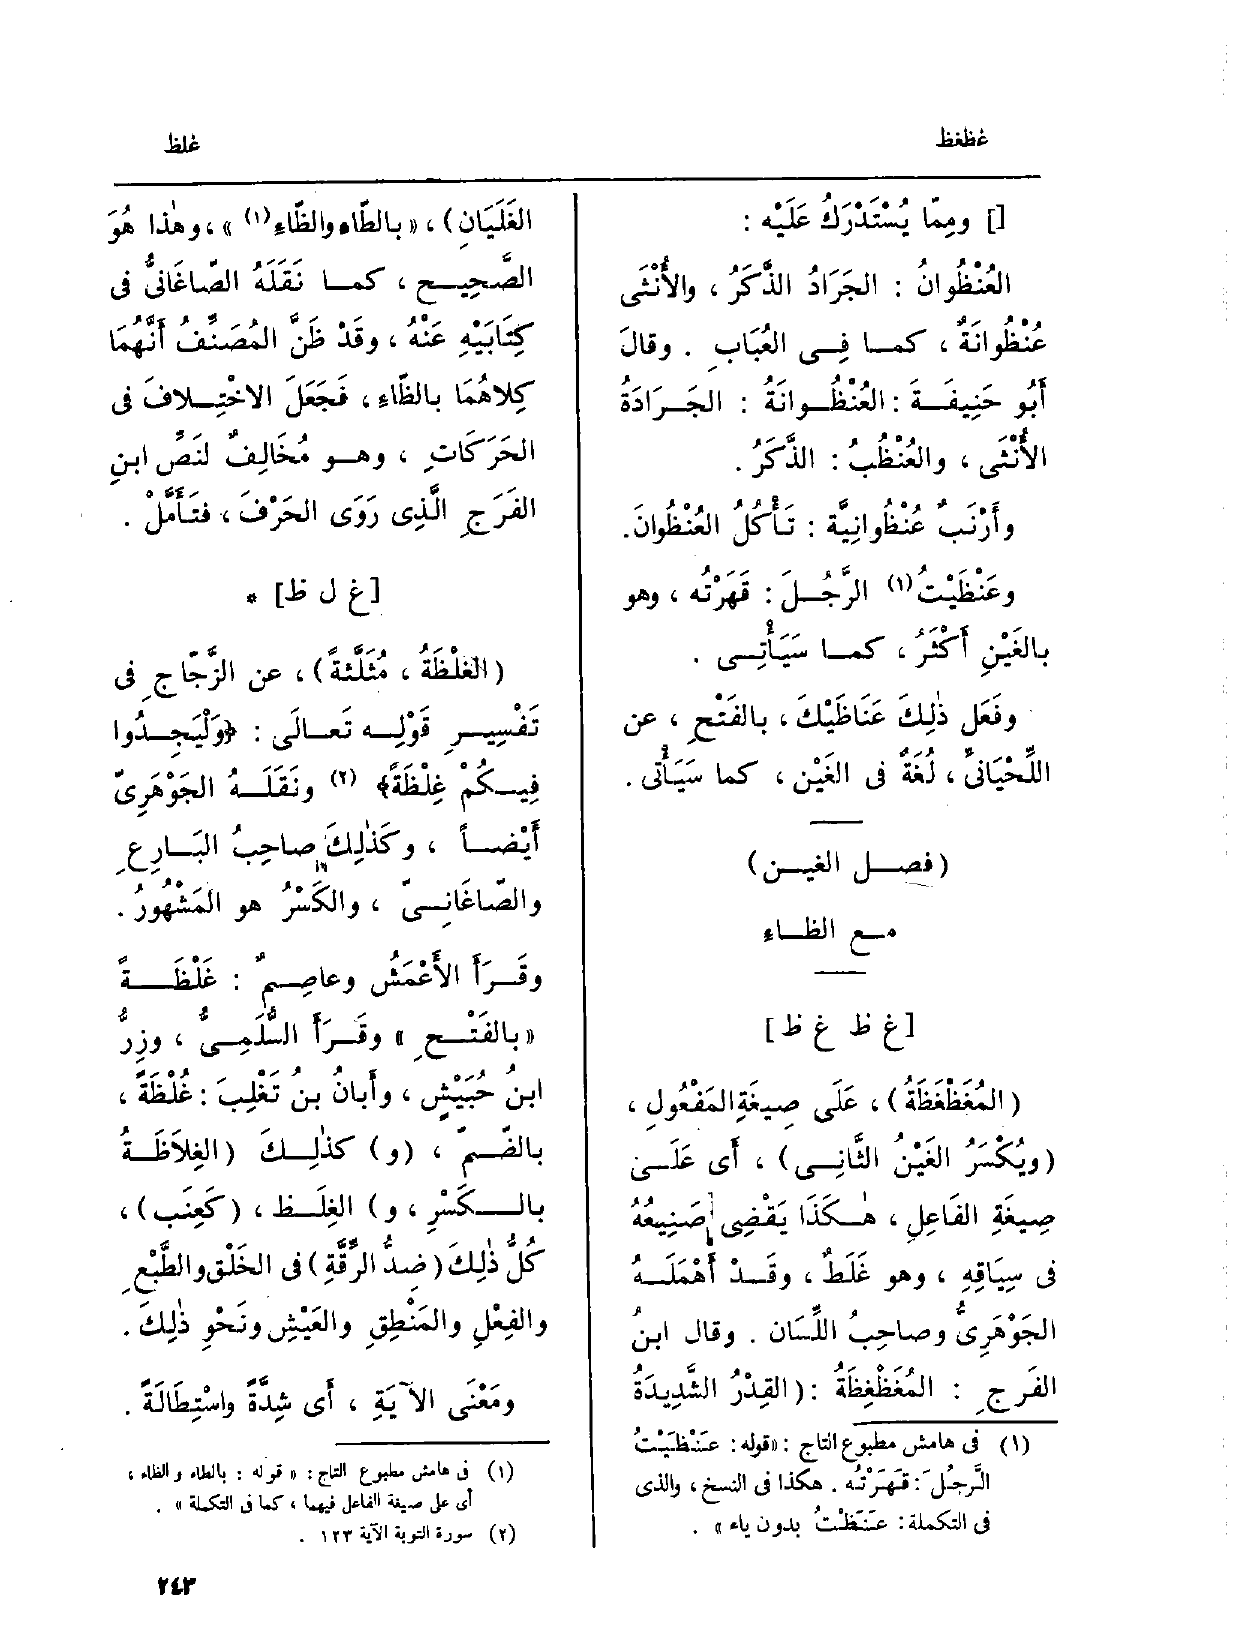 غظغظ
غلظ
[] ومِمّا يُسْتَدْرَكُ عَلَيْه :
العُنْظُوانُ : الجَرَادُ الذَّكَرُ ، والأُنْثَى
عُنْظُوانَةٌ ، كما فِى العُبَابِ . وقالَ
أَبُو حَنِيفَةَ : العُنْظُوانَةُ : الجَرَادَةُ
الأُنْثَى ، والعُنْظُبُ : الذَّكَرُ .
وأَرْنَبٌ عُنْظُوانِيَّة : تَأْكُلُ العُنْظُوانَ.
وعَنْظَيْتُ(١) الرَّجُلَ : قَهَرْتُه ، وهو
بالغَيْنِ أَكْثَرُ ، كما سَيَأْتِى .
وفَعَل ذٰلِكَ عَنَاظِيْكَ ، بالفَتْحِ ، عن
اللِّحْيَانِىِّ ، لُغَةٌ فى الغَيْن ، كما سَيَأْتى .
(فصل الغين)
مع الظاء
[غ ظ غ ظ]
(المُغَظْغَظَةُ) ، عَلَى صِيغَةِ المَفْعُولِ ،
(ويُكْسَرُ الغَيْنُ الثَّانِى) ، أى عَلَى
صِيغَةِ الفَاعِلِ ، هٰكَذَا يَقْضِى صَنِيعُهُ
فى سِيَاقِهِ ، وهو غَلَطٌ ، وقَدْ أَهْمَلَهُ
الجَوْهَرِىُّ وصاحِبُ اللِّسَان . وقال ابنُ
الفَرجِ : المُغَظْغِظَةُ : (القِدْرُ الشَّدِيدَةُ
(١) فى هامش مطبوع التاج : «قوله : عَنْظَيْتُ
الرَّجُلَ : قَهَرْتُه . هكذا فى النسخ ، والذى
فى التكملة : عَنَظتُ بدون ياء » .
الغَلَيَانِ) ، «بالطَّاءِ والظَّاءِ(١) » ، وهٰذا هُوَ
الصَّحِيح ، كما نَقَلَهُ الصّاغَانِىُّ فى
كِتَابَيْهِ عَنْهُ ، وقَدْ ظَنَّ المُصَنِّفُ أَنَّهُمَا
كِلاهُمَا بالظَّاءِ ، فَجَعَلَ الاخْتِلافَ فى
الحَرَكَاتِ ، وهو مُخَالِفٌ لنَصِّ ابنِ
الفَرَجِ الَّذِى رَوَى الحَرْفَ ، فتَأَمَّلْ .
[غ ل ظ] *
(الغلْظَةُ ، مُثَلَّثَةً) ، عن الزَّجّاجِ فى
تَفْسِيرِ قَوْلِه تَعالَى : ﴿وَلْيَجِدُوا
فِيكُمْ غِلْظَةً﴾ (٢) ونَقَلَهُ الجَوْهَرِىّ
أَيْضاً ، وكَذٰلِكَ صاحِبُ البَارِعِ
والصّاغَانِىّ ، والكَسْرُ هو المَشْهُورُ .
وقَرَأَ الأَعْمَشُ وعاصِمٌ : غَلْظَةً
«بالفَتْحِ » وقَرَأَ السُّلَمِىُّ ، وزِرُّ
ابنُ حُبَيْشٍ ، وأَبانُ بنُ تَغْلِبَ : غُلْظَةً ،
بالضَّمّ ، (و) كذٰلِكَ (الغِلاَظَةُ
بالكَسْرِ ، و) الغِلَظ ، (كَعِنَب) ،
كُلُّ ذٰلِكَ (ضِدُّ الرِّقَّةِ) فى الخَلْقِ والطَّبْعِ
والفِعْلِ والمَنْطِقِ والعَيْشِ ونَحْوِ ذٰلِكَ .
ومَعْنَى الآيَةِ ، أى شِدَّةً واسْتِطَالَةً .
(١) فى هامش مطبوع التاج : « قوله : بالطاء والظاء ،
أى على صيغة الفاعل فيهما ، كما فى التكملة » .
(٢) سورة التوبة الآية ١٢٣ .
٢٤٣